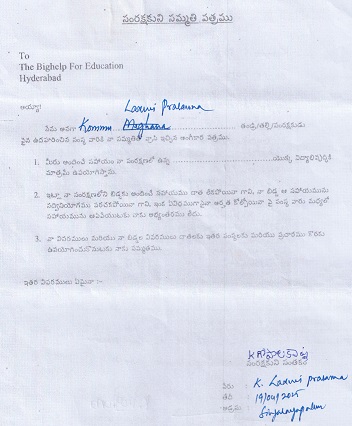 సంరక్షకుని సమ్మతి పత్రము
To
The Bighelp For Education
Hyderabad
అయ్యా!
Laxmi Prasanna
నేను అనగా Kommu Meghana తండ్రి/తల్లి/సంరక్షకుడు
పైన ఉదహరించిన సంస్థ వారికి నా సమ్మతిని వ్రాసి ఇచ్చిన అంగీకార పత్రము.
1. మీరు అందించే సహాయం నా సంరక్షణలో ఉన్న యొక్క విద్యాభివృద్ధికి
మాత్రమే ఉపయోగిస్తాను.
2. ఇట్లు నా సంరక్షణలోని బిడ్డకు అందించే సహాయము దాత లేకపోయినా గాని, నా బిడ్డ ఆ సహాయమును
సద్వినియోగము పరచకపోయినా గాని, ఇక ఏవిధముగానైనా అర్హత కోల్పోయినా పై సంస్థ వారు మధ్యలో
సహాయమును ఆపివేయుటకు నాకు అభ్యంతరము లేదు.
3. నా వివరములు మరియు నా బిడ్డ వివరములు దాతలకు ఇతర సంస్థలకు మరియు ప్రచారము కొరకు
ఉపయోగించుకొనుటకు నాకు సమ్మతము.
ఇతర వివరములు ఏమైనా :-
సంరక్షకుని సంతకం
పేరు: K. Laxmi prasanna
తేదీ:
అడ్రసు: